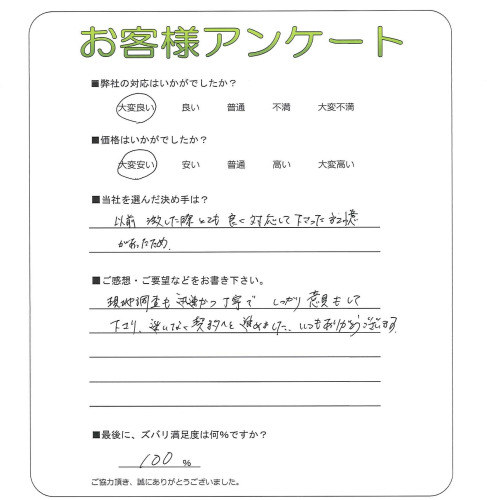 お客様アンケート
■弊社の対応はいかがでしたか？
大変良い 良い 普通 不満 大変不満
■価格はいかがでしたか？
大変安い 安い 普通 高い 大変高い
■当社を選んだ決め手は？
以前 した際とても良く対応して下さった記憶
があったため.
■ご感想・ご要望などをお書き下さい。
現地調査も迅速かつ丁寧で しっかり意見もして
下さり、迷いなく契約へと進めました、いつもありがとうございます
■最後に、ズバリ満足度は何%ですか？
100 %
ご協力頂き、誠にありがとうございました。